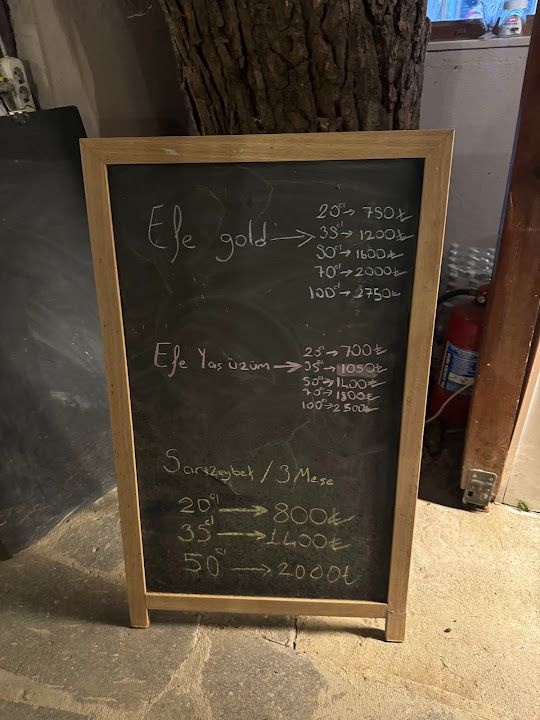 Efe gold → 20cl → 750₺
35cl → 1200₺
50cl → 1600₺
70cl → 2000₺
100cl → 2750₺
Efe Yaş üzüm → 20cl → 700₺
35cl → 1050₺
50cl → 1400₺
70cl → 1800₺
100cl → 2500₺
Sarızeybek / 3 Meşe
20cl → 800₺
35cl → 1400₺
50cl → 2000₺